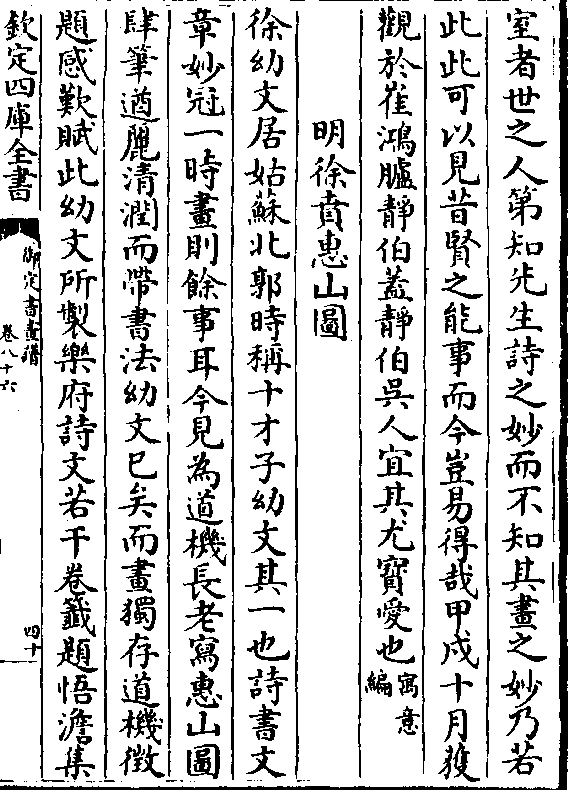 室者世之人第知先生詩之妙而不知其畫之妙乃若
此此可以見昔賢之能事而今豈易得哉甲戌十月獲
觀於崔鴻臚靜伯葢靜伯吳人宜其尤寶愛也寓意編
明徐賁惠山圖
徐幼文居姑蘇北郭時稱十才子幼文其一也詩書文
章妙冠一時畫則餘事耳今見為道機長老寫惠山圖
肆筆遒麗清潤而帶書法幼文已矣而畫獨存道機徴
題感歎賦此幼文所製樂府詩文若干卷籤題悟澹集
欽定四庫全書
御定書畫譜
卷八十六
四十